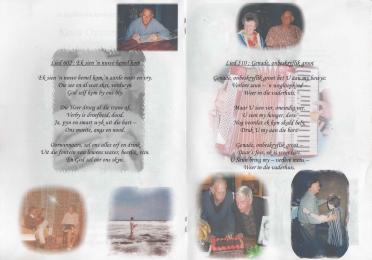 Lied 602: Ek sien 'n nuwe hemel kom
Ek sien 'n nuwe hemel kom, 'n aarde nuut en vry.
Die see en al wat skei, verdwyn,
God self kom by ons bly.
Die Heer droog al die trane af.
Verby is droefheid, dood.
Ja, pyn en smart wyk uit die hart –
Ons moeite, angs en nood.
Oorwinnaars, sal ons alles erf en drink
Uit die fontein van lewens water, heerlik, rein.
En God sal oor ons skyn.
Lied 210: Genade, onbeskryflik groot
Genade, onbeskryflik groot het U aan my bewys:
Verlore seun – 'n wegloopkind –
Weer in die vaderhuis.
Maar U sien ver,
U sien my honger,
Nog voordat ek kon skuld bely,
Druk U my aan die hart.
Genade, onbeskryflik groot –
U Seun bring my – verlore mens –
Weer in die vaderhuis.